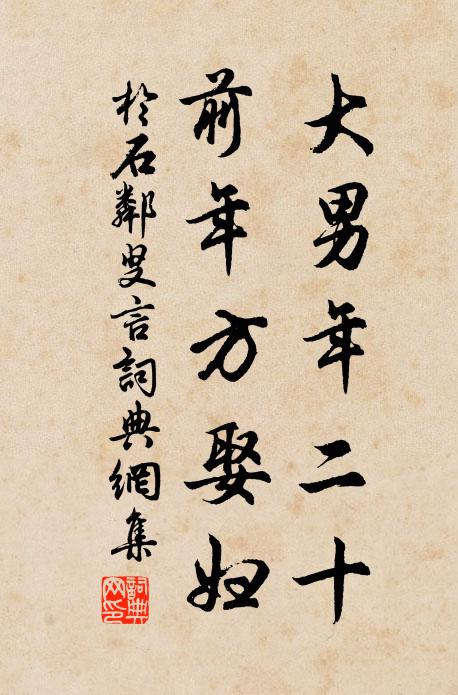 大男年二十
前年方娶妇
於石鄰叟言詞典網集
詞典
网印